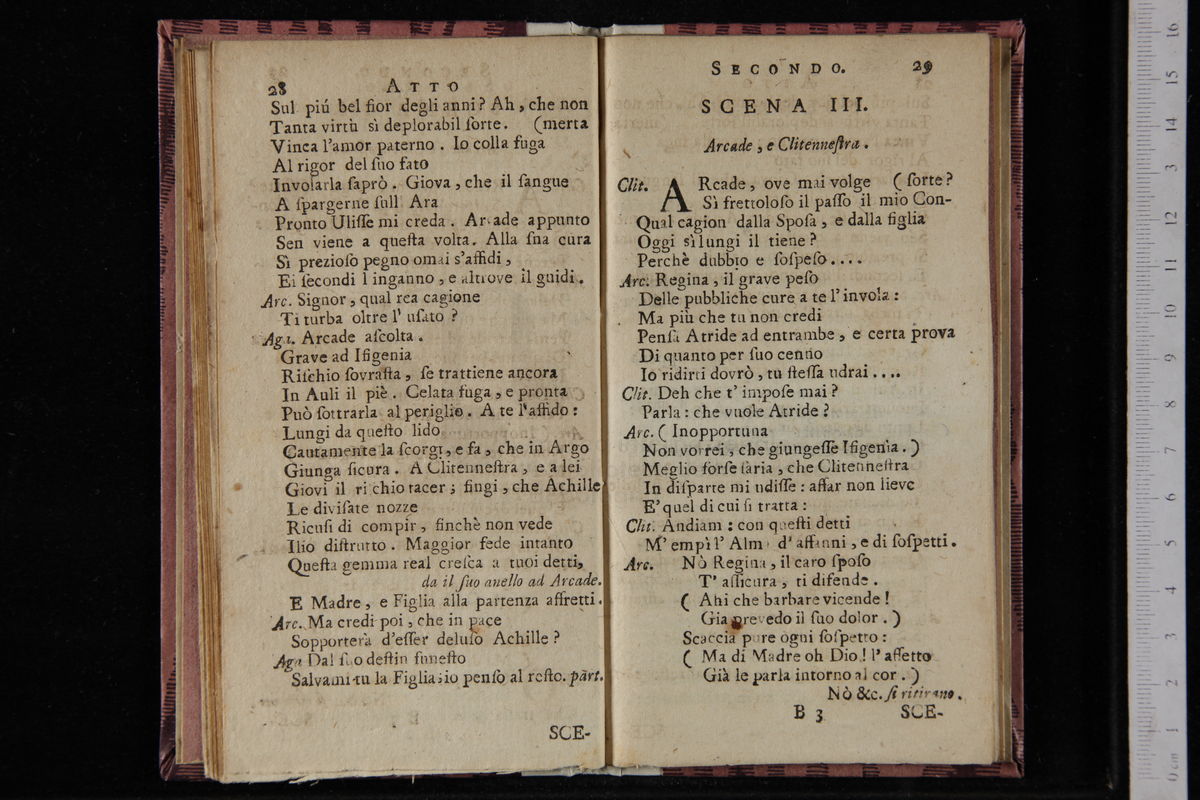 28 ATTO
Sul piú bel fior degli anni? Ah, che non
Tanta virtù sì deplorabil ſorte. (merta
Vinca l'amor paterno. Io colla fuga
Al rigor del ſuo fato
Involarla ſaprò. Giova, che il ſangue
A ſpargerne ſull Ara
Pronto Uliſſe mi creda. Arcade appunto
Sen viene a queſta volta. Alla ſna cura
Sì prezioſo pegno omai s'affidi,
Ei ſecondi l inganno, e altrove il guidi.
Arc. Signor, qual rea cagione
Ti turba oltre l' uſato?
Aga. Arcade aſcolta.
Grave ad Ifigenia
Riſchio ſovraſta, ſe trattiene ancora
In Auli il piè. Celata fuga, e pronta
Può ſottrarla al periglio. A te l'affido:
Lungi da queſto lido
Cautamente la ſcorgi, e fa, che in Argo
Giunga ſicura. A Clitenneſtra, e a lei
Giovi il ri chio tacer; fingi, che Achille
Le diviſate nozze
Ricuſi di compir, finchè non vede
Ilio diſtrutto. Maggior fede intanto
Queſta gemma real creſca a tuoi detti,
da il ſuo anello ad Arcade.
E Madre, e Figlia alla partenza affretti.
Arc. Ma credi poi, che in pace
Sopporterà d'eſſer deluſo Achille?
Aga Dal ſuo deſtin funeſto
Salvami tu la Figlia: io penſo al reſto. part.
SCE-
SECONDO. 29
SCENA III.
Arcade, e Clitenneſtra.
Clit. ARcade, ove mai volge (ſorte?
Sì frettoloſo il paſſo il mio Con-
Qual cagion dalla Spoſa, e dalla figlia
Oggi sì lungi il tiene?
Perchè dubbio e ſoſpeſo....
Arc. Regina, il grave peſo
Delle pubbliche cure a te l'invola:
Ma più che tu non credi
Penſa Atride ad entrambe, e certa prova
Di quanto per ſuo cenno
Io ridirti dovrò, tu ſteſſa udrai....
Clit. Deh che t' impoſe mai?
Parla: che vuole Atride?
Arc. (Inopportuna
Non vorrei, che giungeſſe Ifigenia.)
Meglio forſe ſaria, che Clitenneſtra
In diſparte mi udiſſe: affar non lieve
E' quel di cui ſi tratta:
Clit. Andiam: con queſti detti
M' empì l' Alm d' affanni, e di ſoſpetti.
Arc. Nò Regina, il caro ſpoſo
T' aſſicura, ti difende.
(Ahi che barbare vicende!
Gia prevedo il ſuo dolor.)
Scaccia pure ogni ſoſpetto:
(Ma di Madre oh Dio! l' affetto
Già le parla intorno al cor.)
Nò &c. ſi ritirano.
B 3 SCE-
0 cm 1 2 3 4 5 6 7 8 9 10 11 12 13 14 15 16